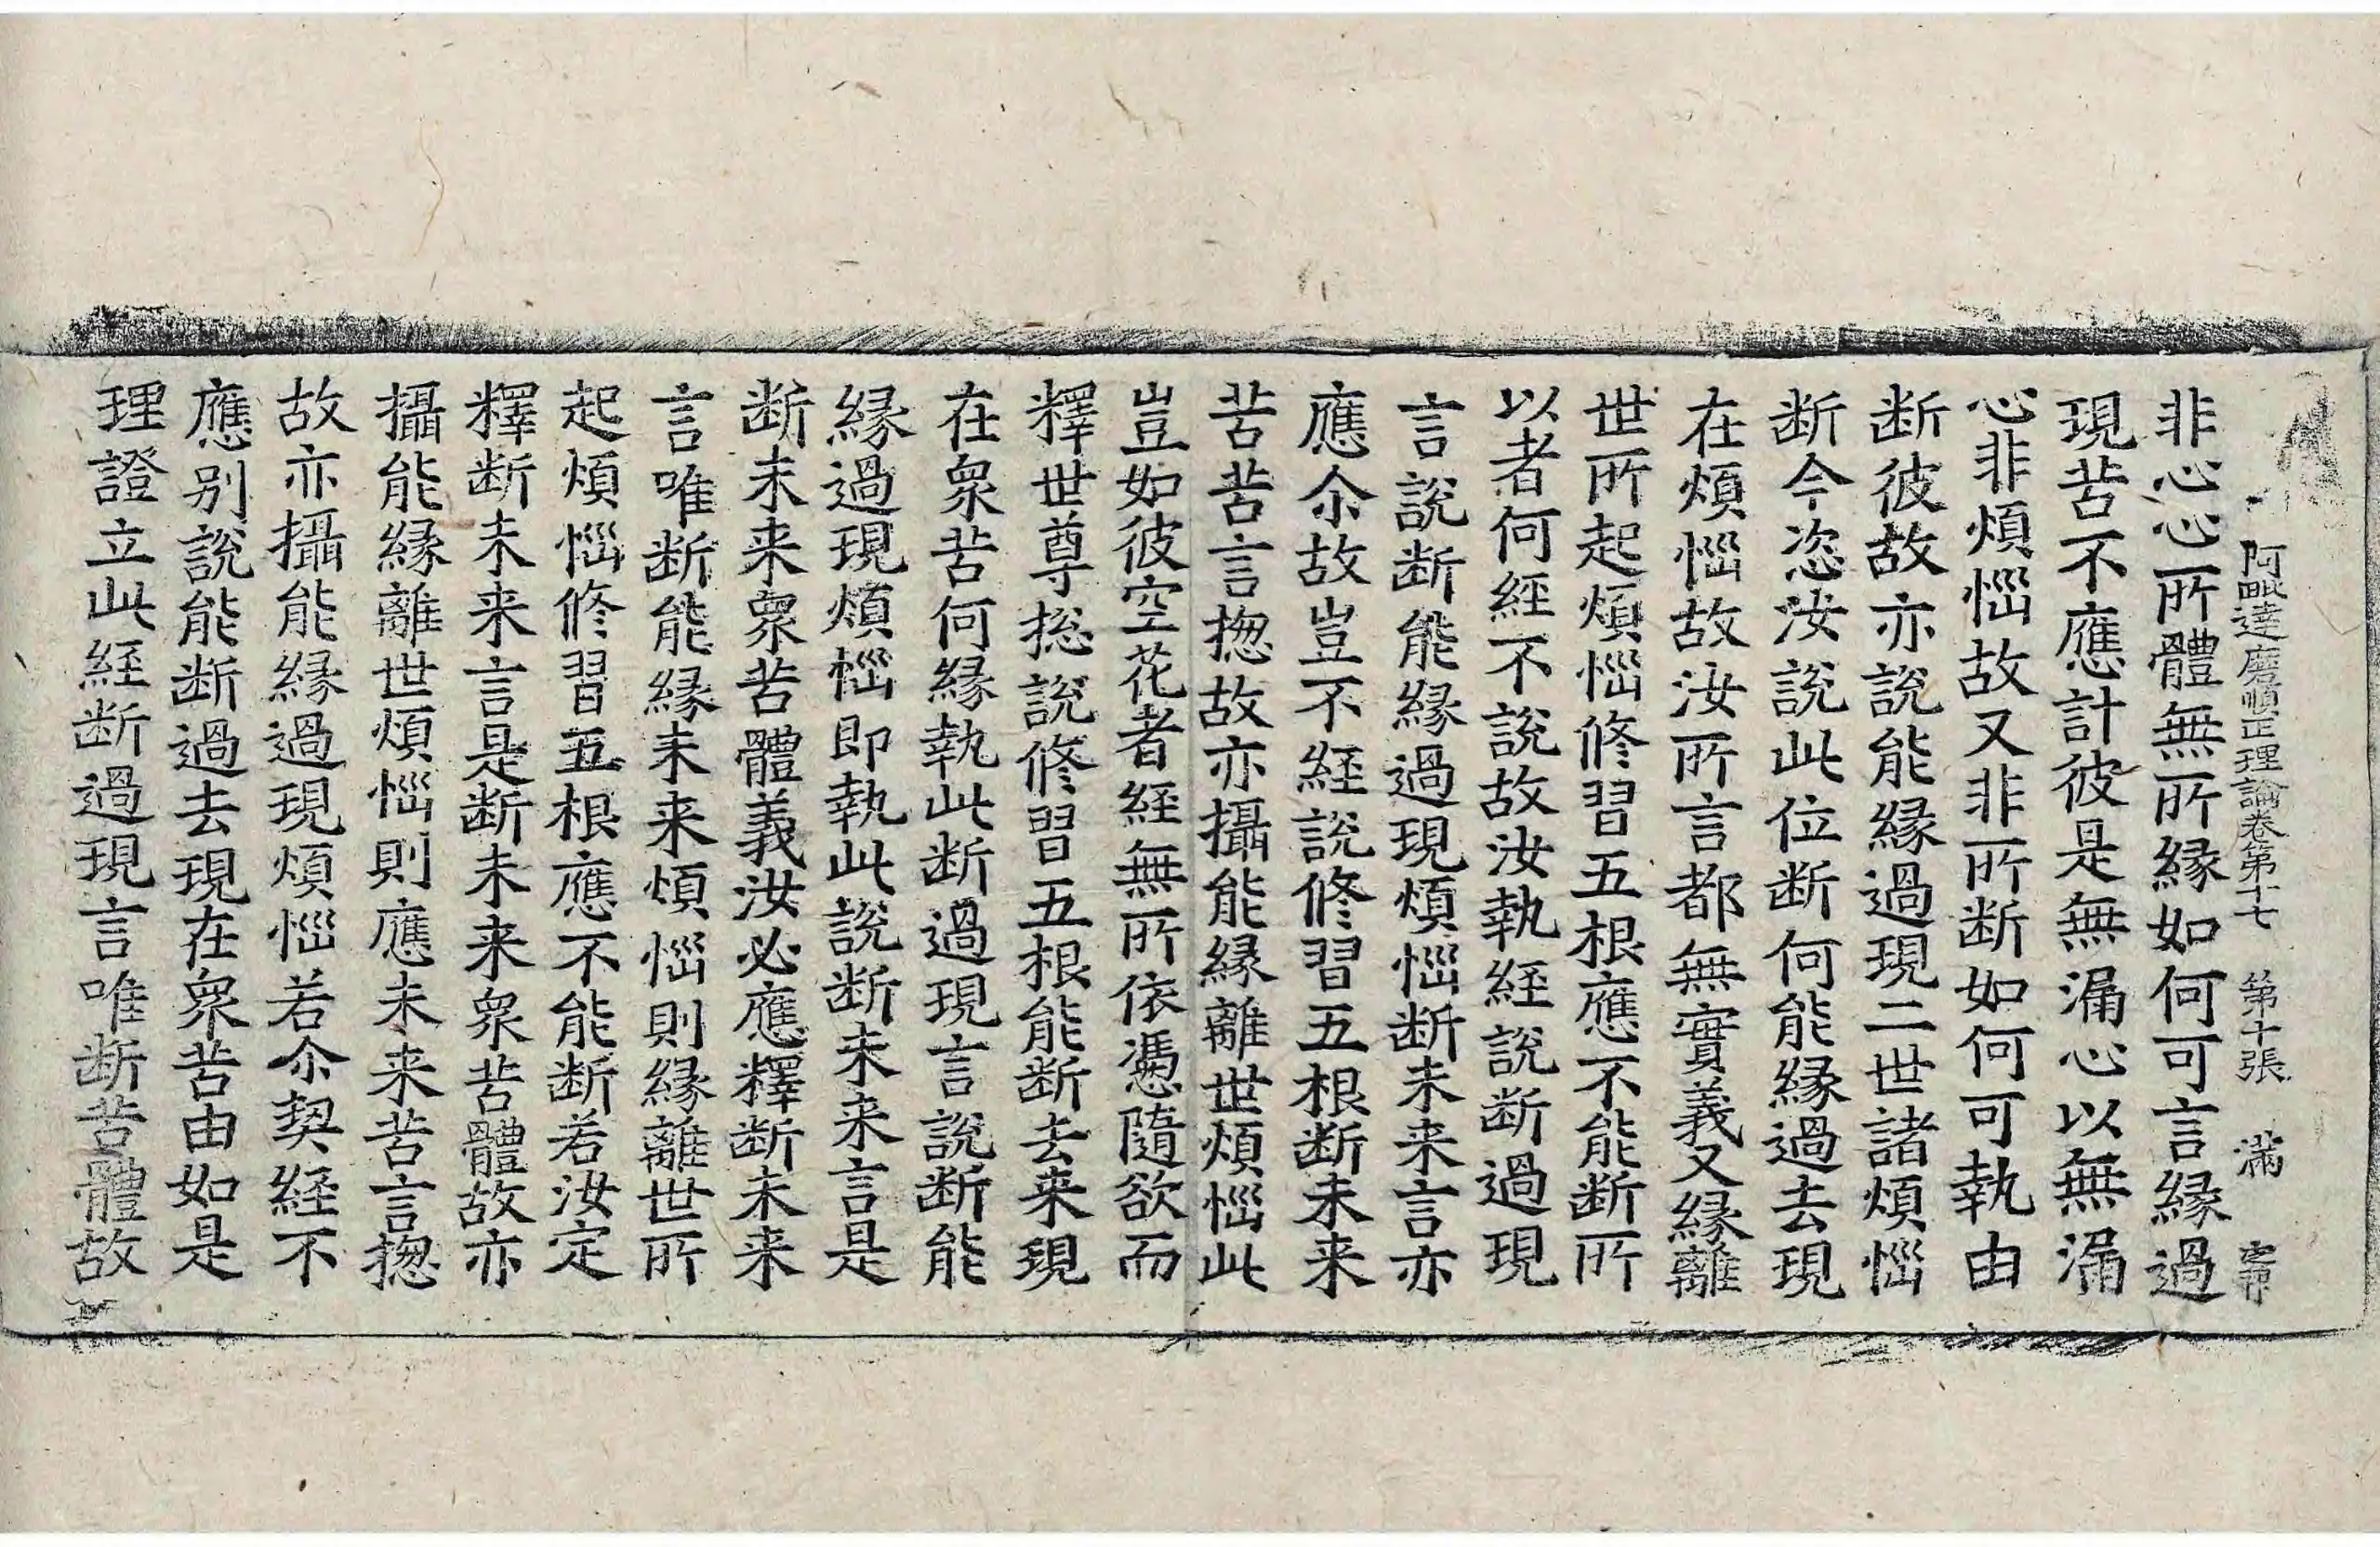 阿毗達磨順正理論卷第十七 第十張 滿
非心心所體無所縁如何可言縁過
現苦不應計彼是無漏心以無漏
心非煩惱故又非所断如何可執由
断彼故亦說能縁過現二世諸煩惱
断今恣汝說此位断何能縁過去現
在煩惱故汝所言都無實義又縁離
世所起煩惱修習五根應不能断所
以者何經不說故汝執経說断過現
言說断能縁過現煩惱断未来言亦
應尒故豈不經說修習五根断未来
苦苦言揔故亦攝能縁離世煩惱此
豈如彼空花者經無所依憑隨欲而
釋世尊揔說修習五根能断去来現
在衆苦何縁執此断過現言說断能
縁過現煩惱即執此說断未来言是
断未来衆苦體義汝必應釋断未来
言唯断能縁未来煩惱則縁離世所
起煩惱修習五根應不能断若汝定
釋断未来言是断未来衆苦體故亦
攝能縁離世煩惱則應未来苦言揔
故亦攝能縁過現煩惱若尒契經不
應別說能断過去現在衆苦由如是
理證立此経断過現言唯断苦體故